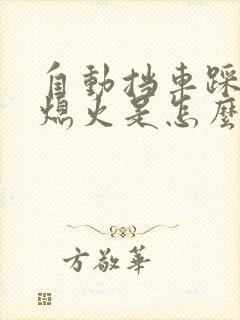 自動挡車踩
熄火是怎麼
方敬華